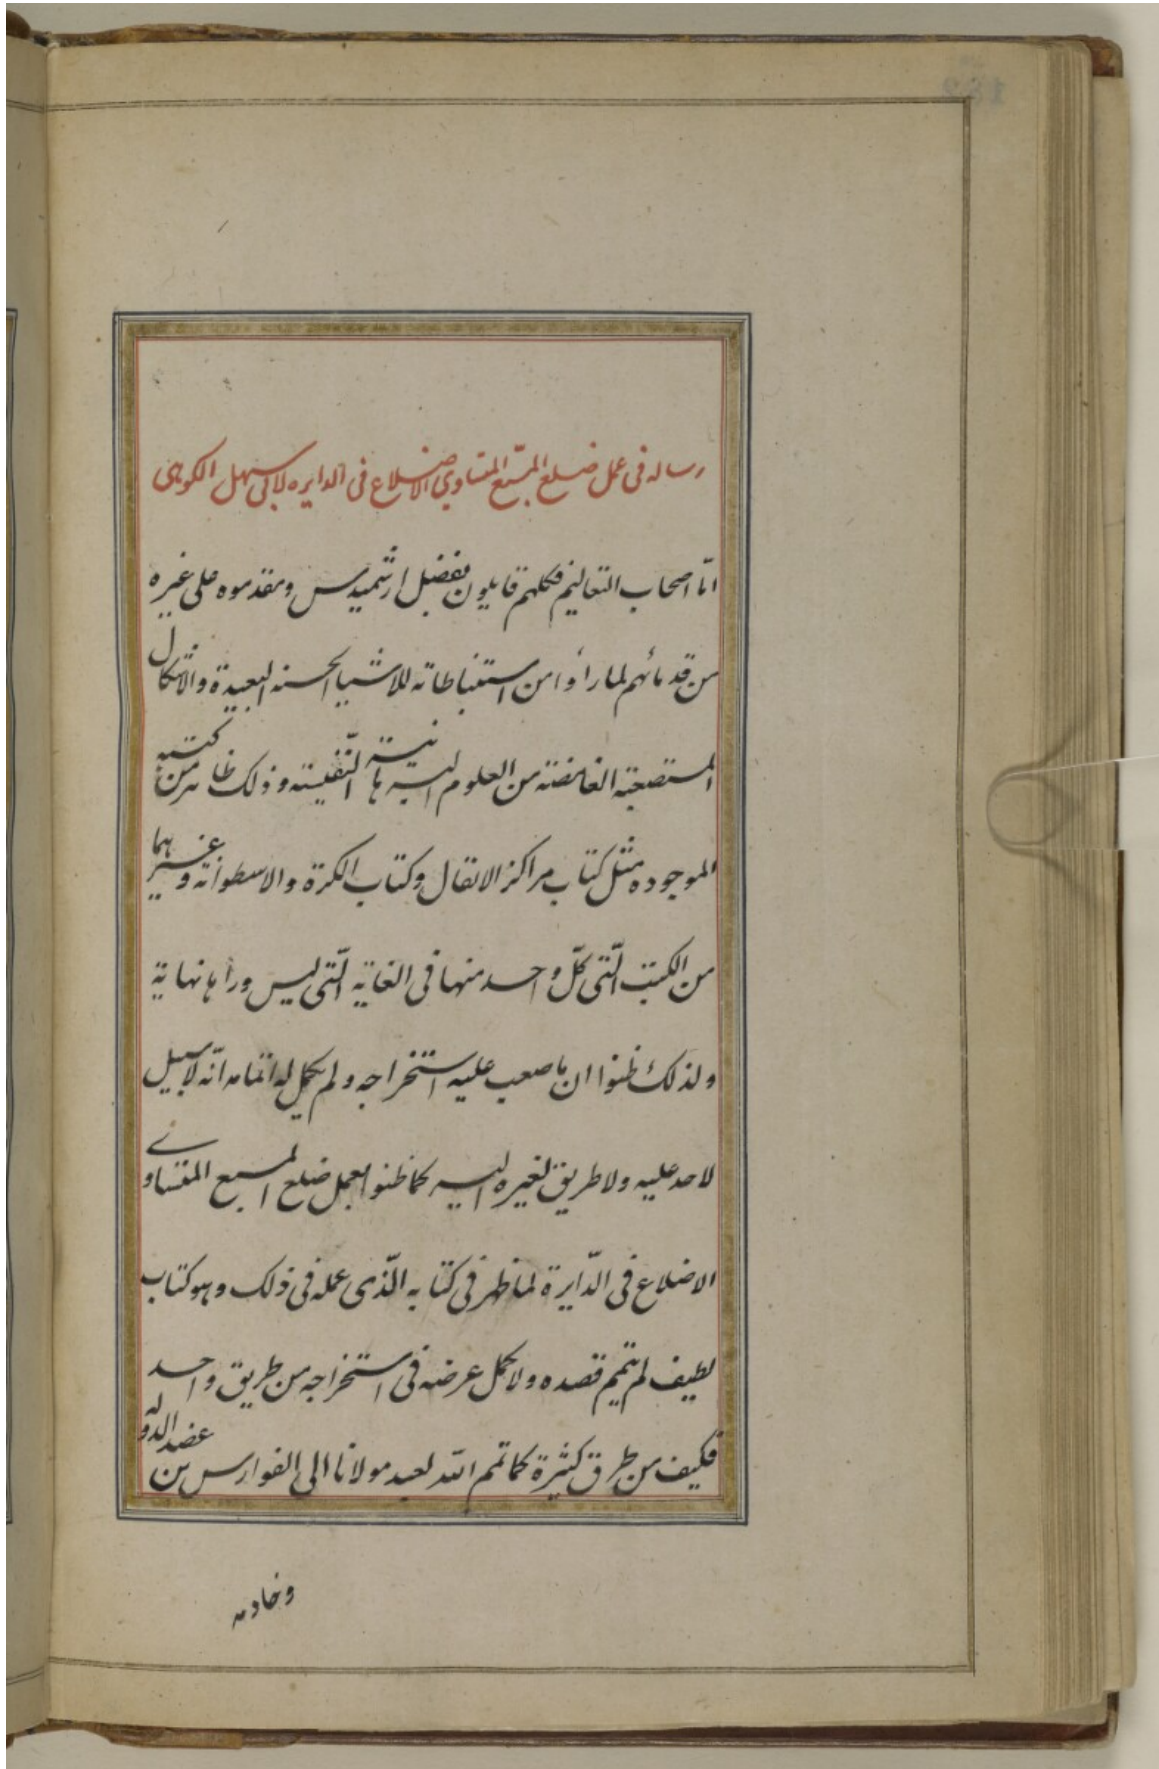 رساله فی عمل ضلع المسبّع المتساوی الاضلاع فی الدایره لابی سهل الکوهی
امّا اصحاب التعالیم فکلهم قایلون بفضل ارشمیدس ومقدموه علی غیره
من قدمائهم لما رأوا من استنباطاته للاشیا الحسنه البعیدة والاشکال
المستصعبة الغامضة من العلوم البرهانیة النّفیسته وذلک ظاهر من کتبه
الموجوده مثل کتاب مراکز الاثقال وکتاب الکرة والاسطوانه وغیرهما
من الکتب الّتی کلّ واحد منها فی الغایه الّتی لیس وراها نهایة
ولذلک ظنوا ان ما صعب علیه استخراجه ولم یکمل له اتمامه انّه لا سبیل
لاحد علیه ولا طریق لغیره الیه کما ظنوا بعمل ضلع المسبع المتساوے
الاضلاع فی الدّایرة لما ظهر فی کتابه الّذی عمله فی ذلک وهو کتاب
لطیف لم یتمیم قصده ولا کمل غرضه فی استخراجه من طریق واحد
فکیف من طرق کثیرة کما تمم الله لعبد مولانا ابی الفوارس بن عضد الدوله
وخادمه